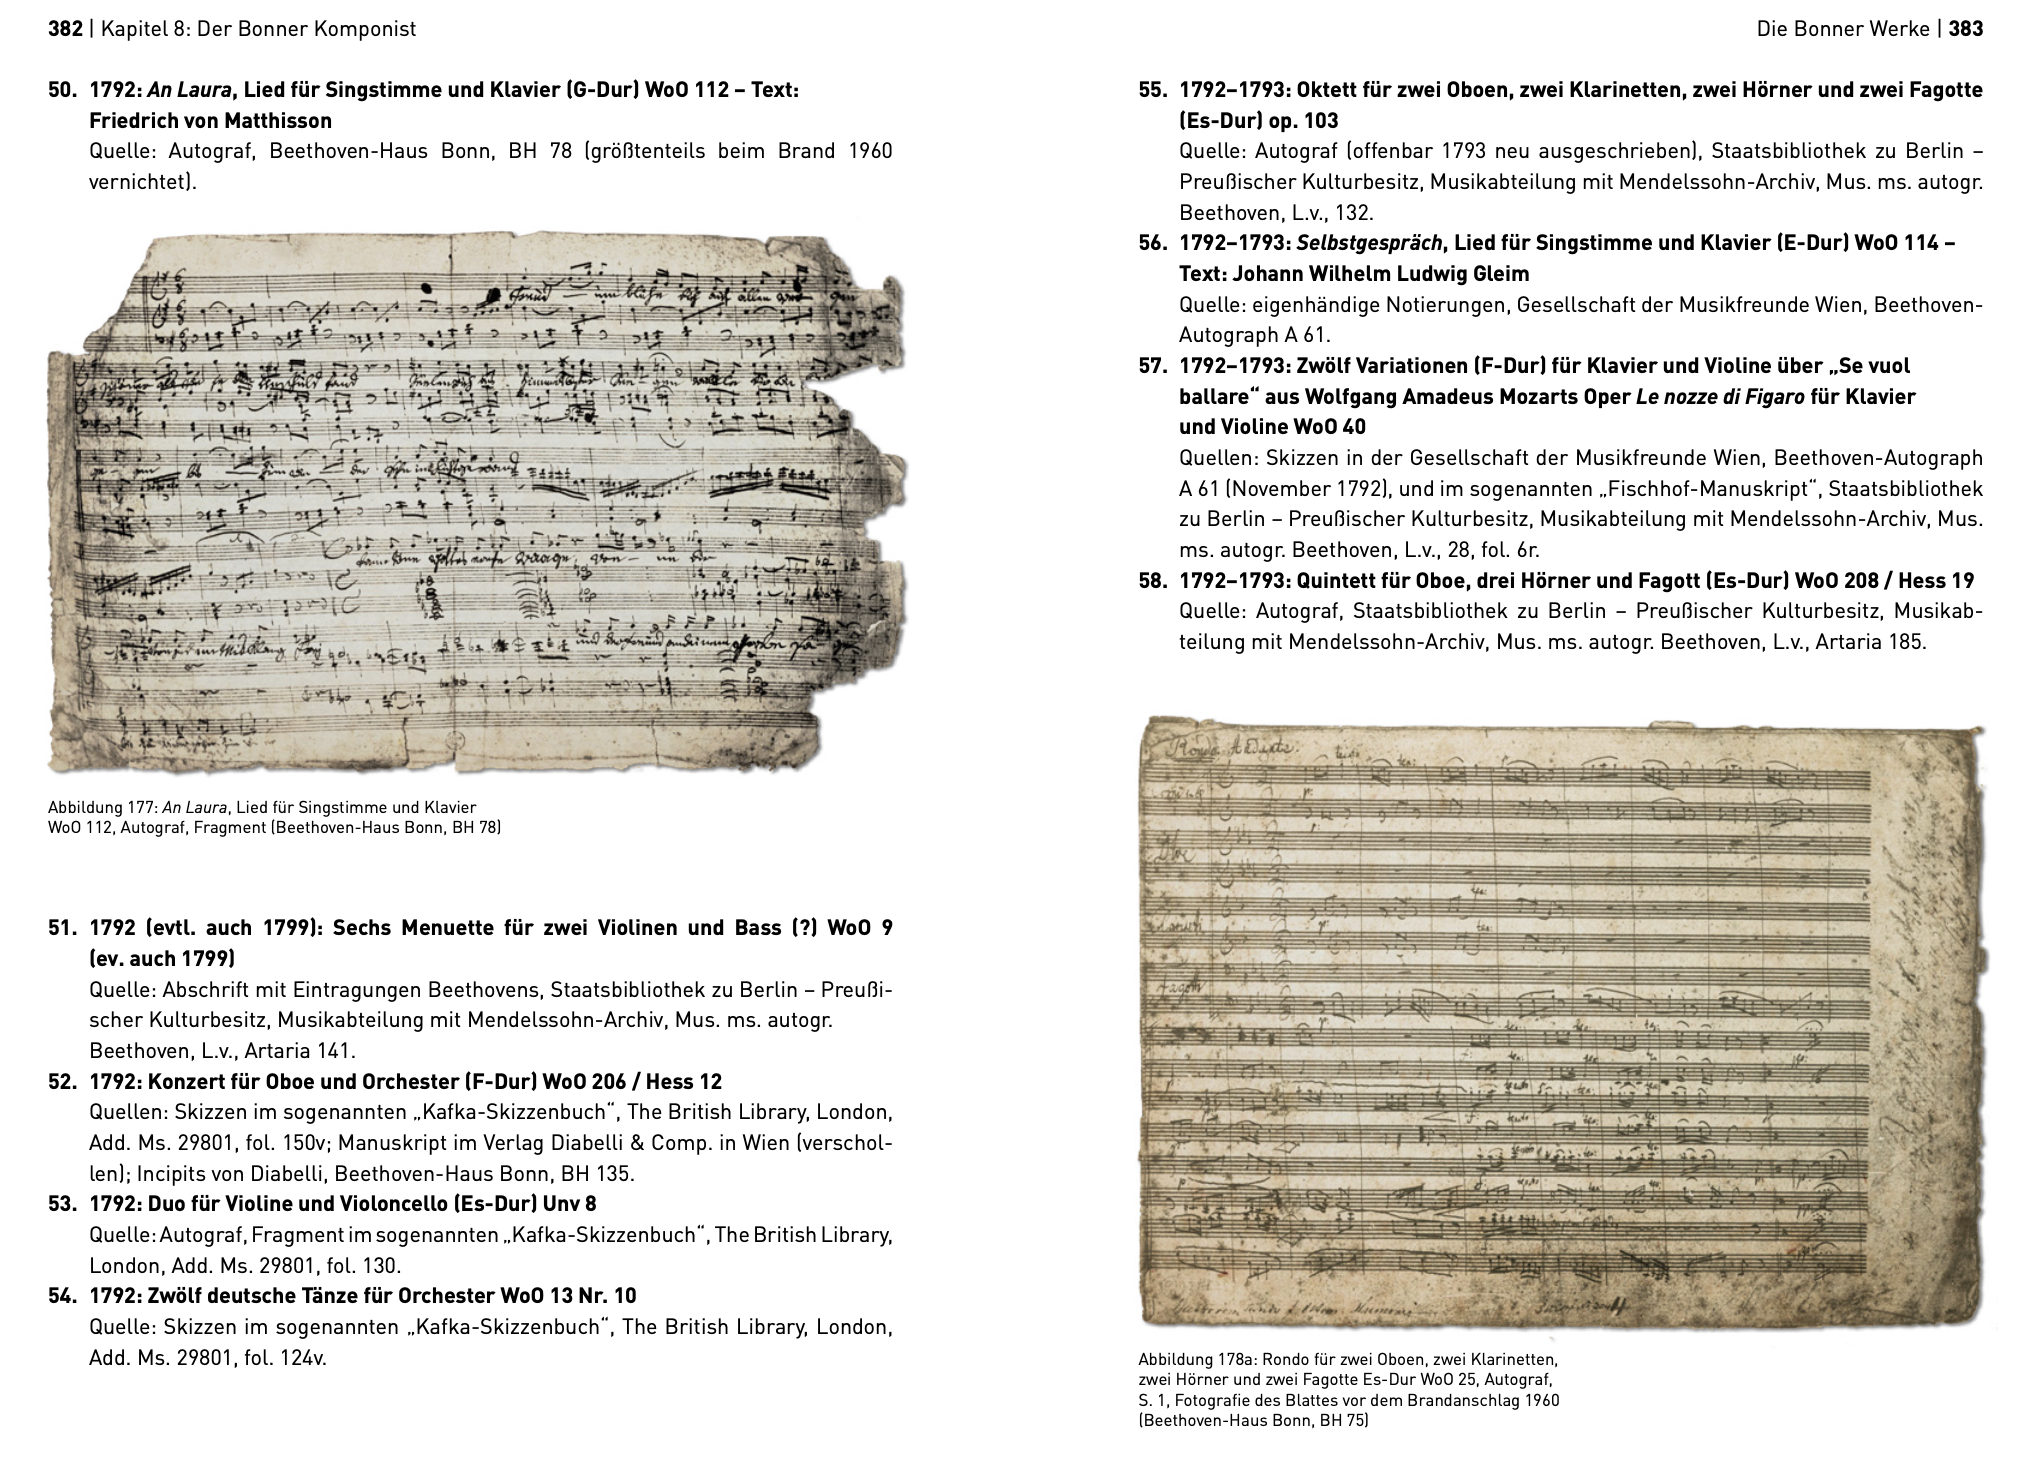 382 | Kapitel 8: Der Bonner Komponist
50. 1792: An Laura, Lied für Singstimme und Klavier (G-Dur) WoO 112 – Text:
Friedrich von Matthisson
Quelle: Autograf, Beethoven-Haus Bonn, BH 78 (größtenteils beim Brand 1960
vernichtet).
Abbildung 177: An Laura, Lied für Singstimme und Klavier
WoO 112, Autograf, Fragment (Beethoven-Haus Bonn, BH 78)
51. 1792 (evtl. auch 1799): Sechs Menuette für zwei Violinen und Bass (?) WoO 9
(ev. auch 1799)
Quelle: Abschrift mit Eintragungen Beethovens, Staatsbibliothek zu Berlin – Preußi-
scher Kulturbesitz, Musikabteilung mit Mendelssohn-Archiv, Mus. ms. autogr.
Beethoven, L.v., Artaria 141.
52. 1792: Konzert für Oboe und Orchester (F-Dur) WoO 206 / Hess 12
Quellen: Skizzen im sogenannten „Kafka-Skizzenbuch“, The British Library, London,
Add. Ms. 29801, fol. 150v; Manuskript im Verlag Diabelli & Comp. in Wien (verschol-
len); Incipits von Diabelli, Beethoven-Haus Bonn, BH 135.
53. 1792: Duo für Violine und Violoncello (Es-Dur) Unv 8
Quelle: Autograf, Fragment im sogenannten „Kafka-Skizzenbuch“, The British Library,
London, Add. Ms. 29801, fol. 130.
54. 1792: Zwölf deutsche Tänze für Orchester WoO 13 Nr. 10
Quelle: Skizzen im sogenannten „Kafka-Skizzenbuch“, The British Library, London,
Add. Ms. 29801, fol. 124v.
Die Bonner Werke | 383
55. 1792–1793: Oktett für zwei Oboen, zwei Klarinetten, zwei Hörner und zwei Fagotte
(Es-Dur) op. 103
Quelle: Autograf (offenbar 1793 neu ausgeschrieben), Staatsbibliothek zu Berlin –
Preußischer Kulturbesitz, Musikabteilung mit Mendelssohn-Archiv, Mus. ms. autogr.
Beethoven, L.v., 132.
56. 1792–1793: Selbstgespräch, Lied für Singstimme und Klavier (E-Dur) WoO 114 –
Text: Johann Wilhelm Ludwig Gleim
Quelle: eigenhändige Notierungen, Gesellschaft der Musikfreunde Wien, Beethoven-
Autograph A 61.
57. 1792–1793: Zwölf Variationen (F-Dur) für Klavier und Violine über „Se vuol
ballare“ aus Wolfgang Amadeus Mozarts Oper Le nozze di Figaro für Klavier
und Violine WoO 40
Quellen: Skizzen in der Gesellschaft der Musikfreunde Wien, Beethoven-Autograph
A 61 (November 1792), und im sogenannten „Fischhof-Manuskript“, Staatsbibliothek
zu Berlin – Preußischer Kulturbesitz, Musikabteilung mit Mendelssohn-Archiv, Mus.
ms. autogr. Beethoven, L.v., 28, fol. 6r.
58. 1792–1793: Quintett für Oboe, drei Hörner und Fagott (Es-Dur) WoO 208 / Hess 19
Quelle: Autograf, Staatsbibliothek zu Berlin – Preußischer Kulturbesitz, Musikab-
teilung mit Mendelssohn-Archiv, Mus. ms. autogr. Beethoven, L.v., Artaria 185.
Rondo Andante
Abbildung 178a: Rondo für zwei Oboen, zwei Klarinetten,
zwei Hörner und zwei Fagotte Es-Dur WoO 25, Autograf,
S. 1, Fotografie des Blattes vor dem Brandanschlag 1960
(Beethoven-Haus Bonn, BH 75)